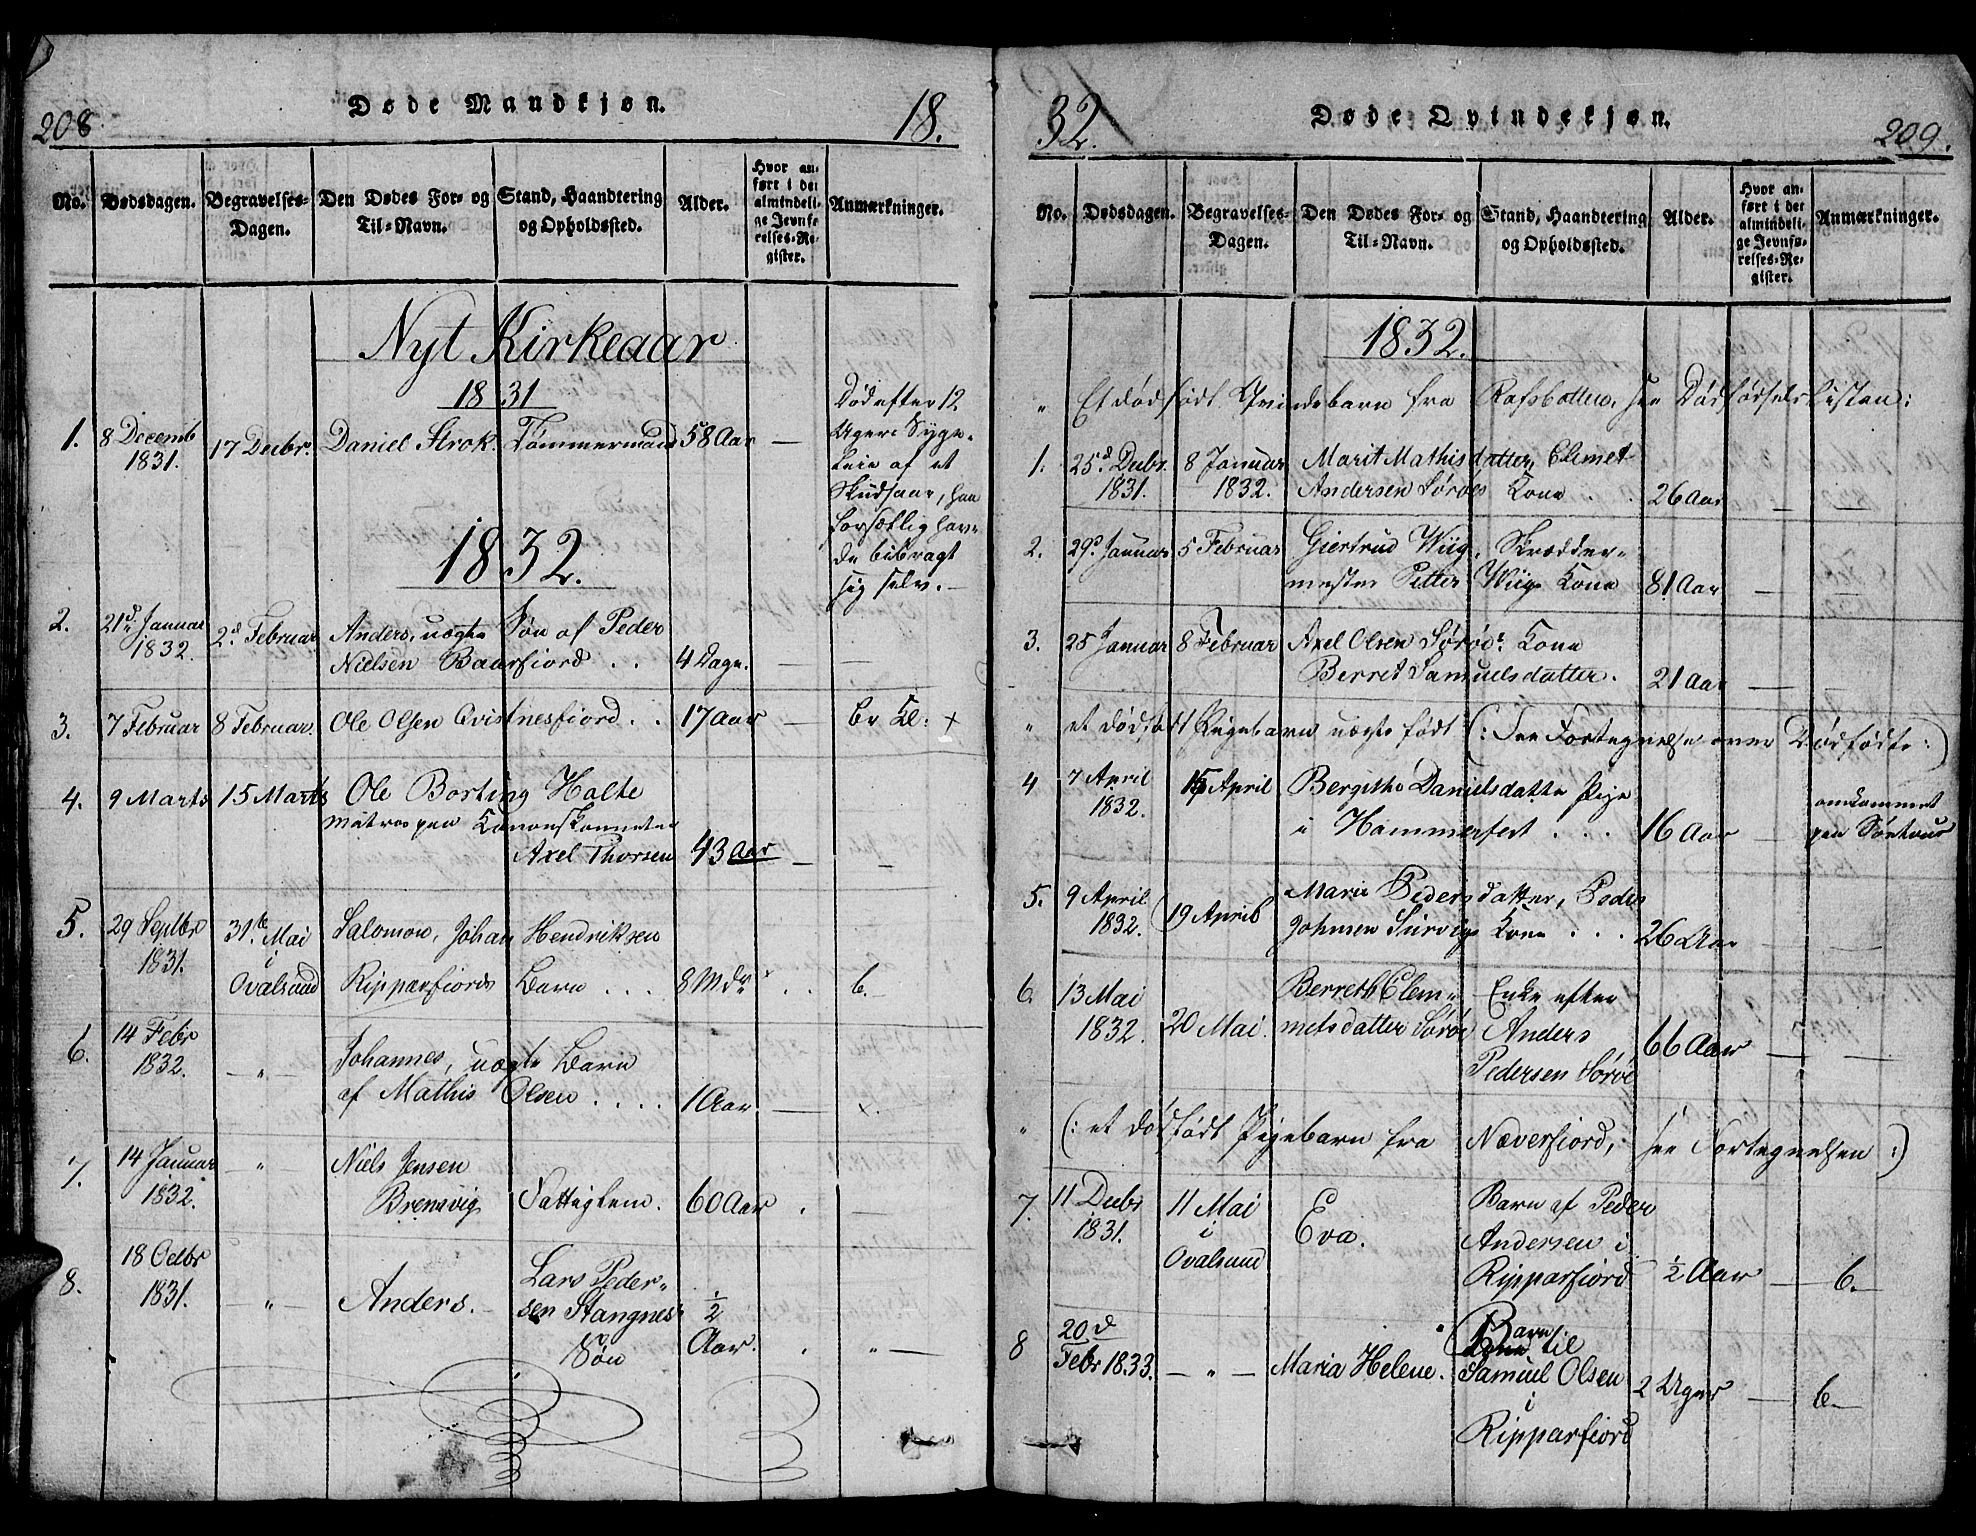 208
Døde Mandkjøn.
18.
No.
Dødsdagen.
Begravelses-
Dagen.
Den Dødes For- og
Til-Navn.
Stand, Haandtering
og Opholdssted.
Alder.
Hvor an-
ført i det
almindeli-
ge Jevnfø-
relses-Re-
gister.
Anmærkninger.
Nyt Kirkeaar
1831
1. 8 Decemb 1831. 17 Decbr. Daniel Strok. Tømmermand 58 Aar —
Død efter 12
Ugers Syge-
leie af et
Skudsaar, han
forsætlig hav-
de bibragt
sig selv. —
1832.
2. 21d Januar 1832. 2d Februar Anders, uægte Søn af Peder
Nielsen Baarfiord . . 4 Dage. — —
3. 7 Februar 8 Februar. Ole Olsen Qvistnesfiord . . 17 Aar —
4. 9 Marts 15 Marts Ole Borting Holte
Matros paa Kanonskonnerten
Axel Thorsen 43 Aar — —
5. 29 Septbr 1831. 31te Mai i Qvalsund Salomon, Johan Hendriksen
Ripparfiords Barn . . . 8 Mdr . . 6.
6. 14 Febr 1832. — " — Johannes, uægte Barn
af Mathis Olsen . . . . 1 Aar. — x.
7. 14 Januar 1832. " Niels Jensen
Bremsvig Fattiglem. 60 Aar . —
8. 18 Octbr 1831. — " — Anders. — Lars Peder-
sen Stangnes
Søn ½ Aar. . " —
32.
Døde Qvindekjøn.
209.
No.
Dødsdagen.
Begravelses-
Dagen.
Den Dødes For- og
Til-Navn.
Stand, Haandtering
og Opholdssted.
Alder.
Hvor an-
ført i det
almindeli-
ge Jevnfø-
relses-Re-
gister.
Anmærkninger.
1832.
" Et dødfødt Qvindebarn fra Rafsbotten, see Dødfødselslisten:
1. 25d Decbr 1831. 8 Januar 1832. Marit Mathisdatter, Clemet
Andersen Sørøes Kone . . 26 Aar — —
2. 29d Januar 5 Februar Giertrud Wiig, Skrædder-
mester Petter Wiigs Kone 81 Aar — —
3. 25 Januar 8 Februar Axel Olsen Sørøe Kone
Berret Samuelsdatter. 21 Aar — —
" et dødfødt Pigebarn uægte født (: See Fortegnelse over Dødfødte :)
4 7 April 1832. 15 April Bergithe Danielsdatter Pige
i Hammerfest . . . 16 Aar —
omkommet
paa Søreture
5. 9 April 1832. 19 April Maria Pedersdatter, Peder
Johnsen Survigs Kone . . . 26 Aar — —
6. 13 Mai 1832. 20 Mai. Berreth Clem-
metsdatter Sørøe
Enke efter
Anders
Pedersen Sørøe 66 Aar — —
" (: et dødfødt Pigebarn fra Næverfiord, see Fortegnelsen :)
7. 11 Decbr 1831. 11 Mai i Qvalsund Eva. Barn af Peder
Andersen i
Ripparfiord ½ Aar — 6. —
8 20d Febr 1833. — " — Maria Helene. Barn til
Samuel Olsen
i
Ripparfiord 2 Uger — 6 —